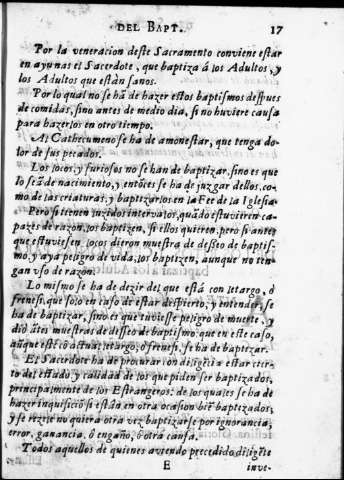 DEL BAPT. 17
Por la veneracion deste Sacramento conviene estar
en ayunas el Sacerdote, que baptiza á los Adultos, y
los Adultos que están sanos.
Por lo qual no se hã de hazer estos baptismos despues
de comidas, sino antes de medio dia, si no huviere causa
para hazerlos en otro tiempo.
Al Cathecumeno se ha de amonestar, que tenga do-
lor de sus pecados.
Los locos, y furiosos no se han de baptizar, sino es que
lo seã de nacimiento, y entõces se ha de juzgar dellos, co-
mo de las criaturas, y baptizarlos en la Fee de la Iglesia
Pero si tienen luzidos intervalos, quãdo estuvieren ca-
pazes de razon, los baptizen, si ellos quieren, pero si antes
que estuviesen locos dieron muestra de desseo de baptis-
mo, y aya peligro de vida, los baptizen, aunque no ten-
gan vso de razon.
Lo mismo se ha de dezir del que está con letargo, ó
frenesi, que solo en caso de estar despierto, y entender se
ha de baptizar, sino es que tuviesse peligro de muerte, y
dió átes muestras de desseo de baptismo que en este caso,
aũque esté cõ actual letargo, ó frenesi, se ha de baptizar.
El Sacerdote ha de procurar, on diligẽcia estar cier-
to del estado, y calidad de los que piden ser baptizados,
principalmente de los Estrangeros: de los quales se ha de
hazer inquisiciõ si estãn en otra ocasion biẽ baptizados,
y se rezie no quiera otra vez baptizarse por ignorancia,
error, ganancia, ó engaño, ó otra causa.
Todos aquellos de quienes aviendo precedido diligẽte
E inve-